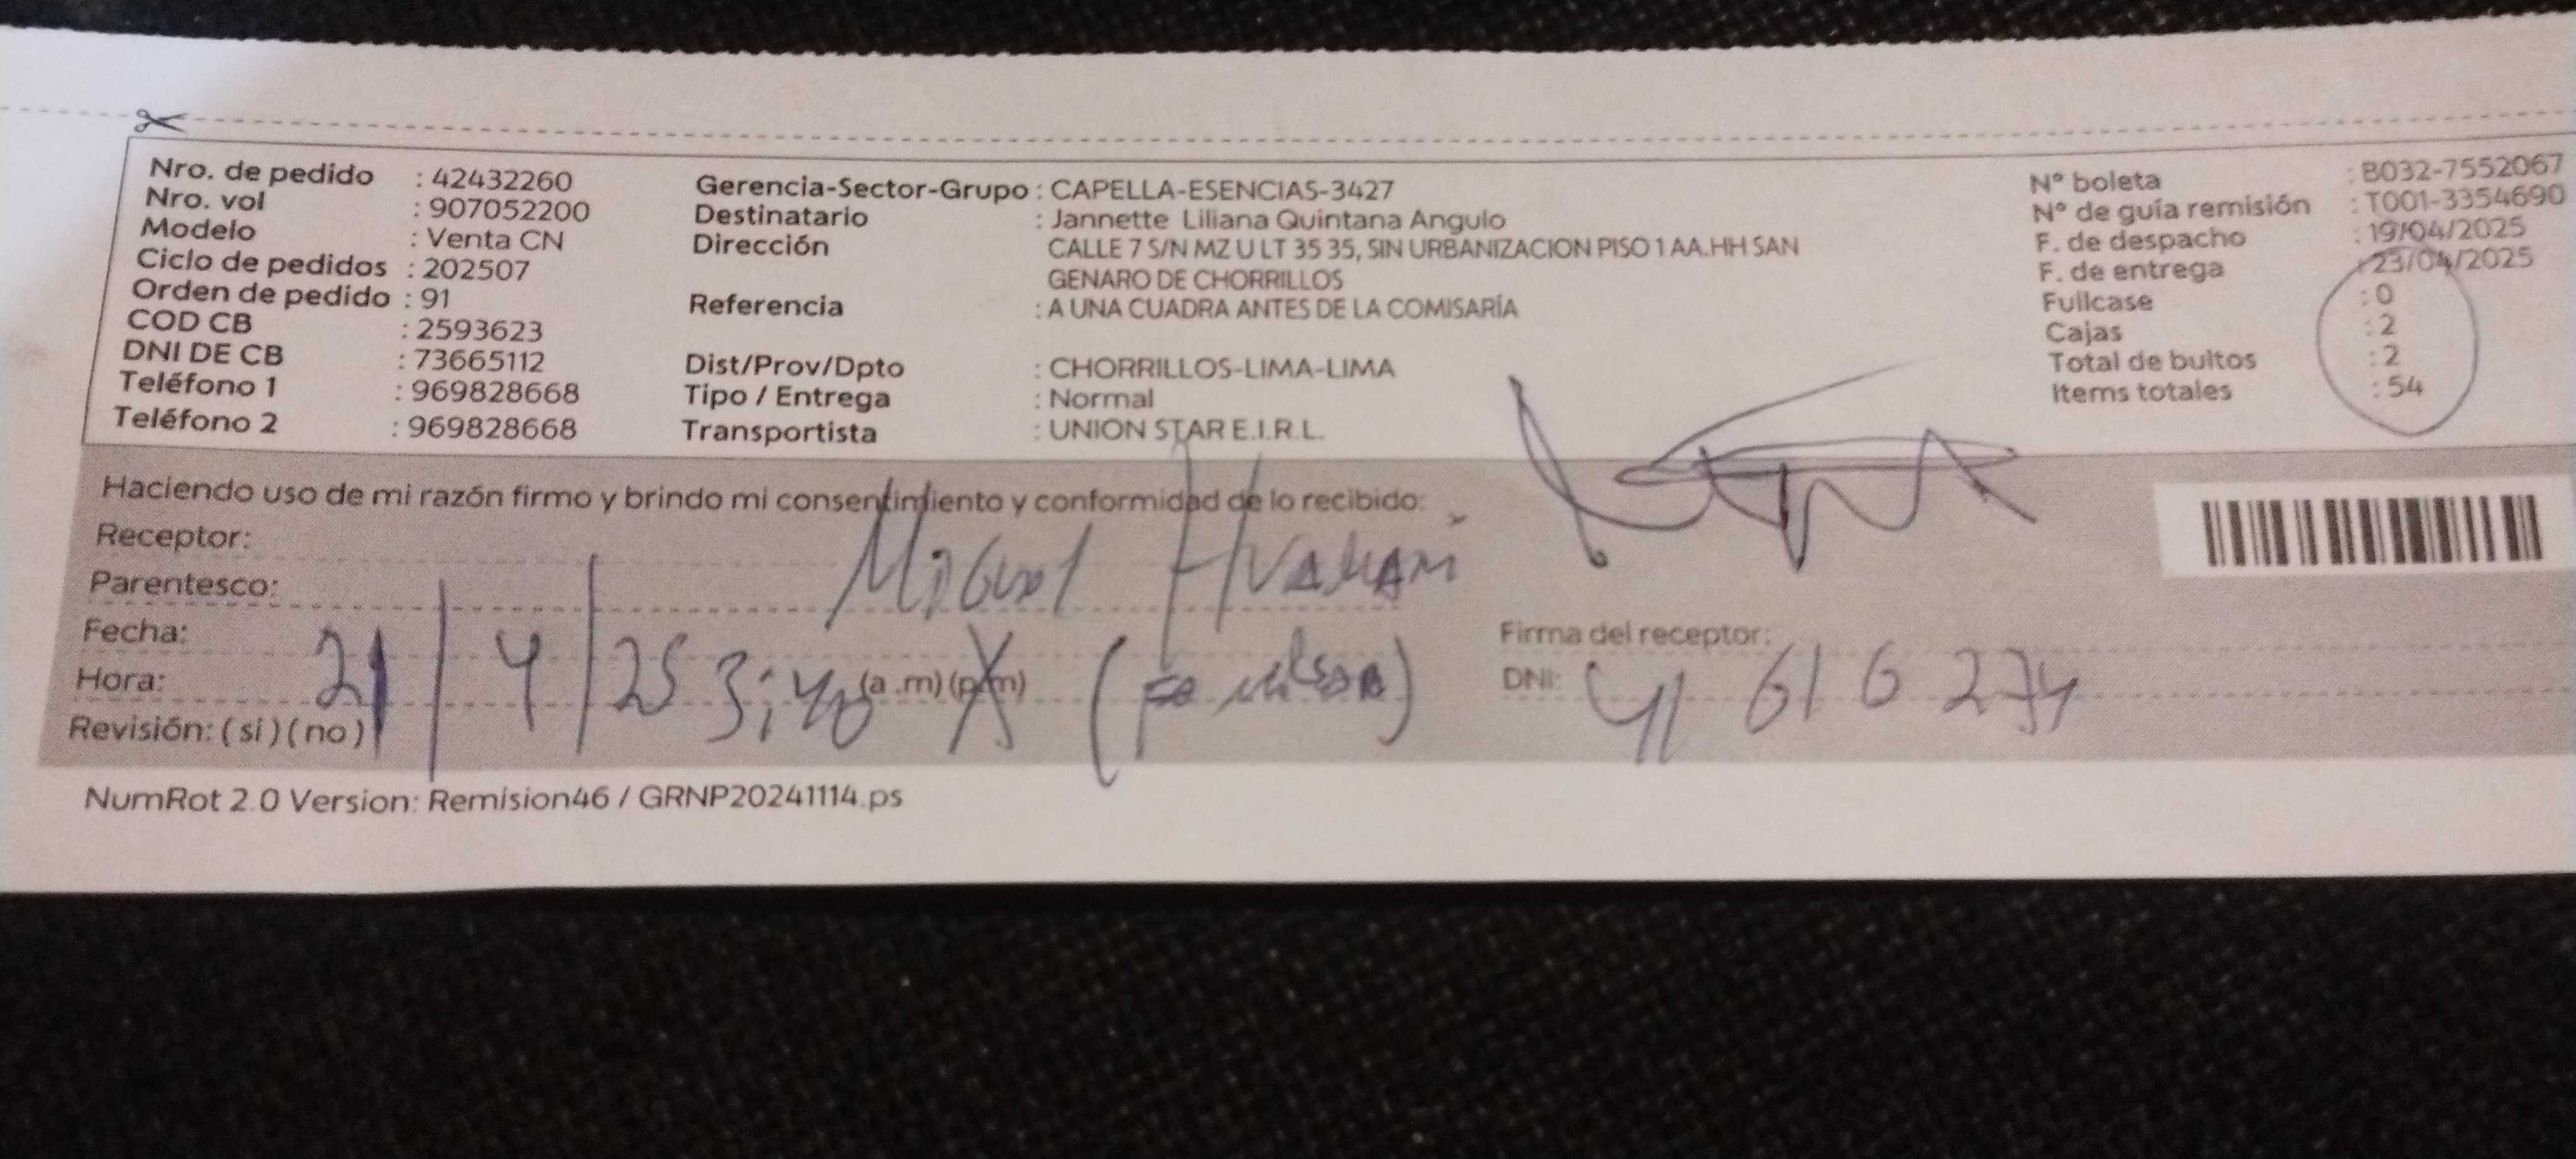 Nro. de pedido : 42432260
Nro. vol : 907052200
Modelo : Venta CN
Ciclo de pedidos : 202507
Orden de pedido : 91
COD CB : 2593623
DNI DE CB : 73665112
Teléfono 1 : 969828668
Teléfono 2 : 969828668
Gerencia-Sector-Grupo : CAPELLA-ESENCIAS-3427
Destinatario : Jannette Liliana Quintana Angulo
Dirección CALLE 7 S/N MZ U LT 35 35, SIN URBANIZACION PISO 1 AA.HH SAN
GENARO DE CHORRILLOS
Referencia : A UNA CUADRA ANTES DE LA COMISARÍA
Dist/Prov/Dpto : CHORRILLOS-LIMA-LIMA
Tipo / Entrega : Normal
Transportista : UNION STAR E.I.R.L.
N° boleta : B032-7552067
N° de guía remisión : T001-3354690
F. de despacho : 19/04/2025
F. de entrega : 23/04/2025
Fullcase : 0
Cajas : 2
Total de bultos : 2
Items totales : 54
Haciendo uso de mi razón firmo y brindo mi consentimiento y conformidad de lo recibido:
Receptor:
Parentesco: Miguel
Fecha: 21/4/25
Hora: 3:40 (a.m) (p.m)
Revisión: ( si ) ( no )
Firma del receptor:
DNI: 41616274
NumRot 2.0 Version: Remision46 / GRNP20241114.ps